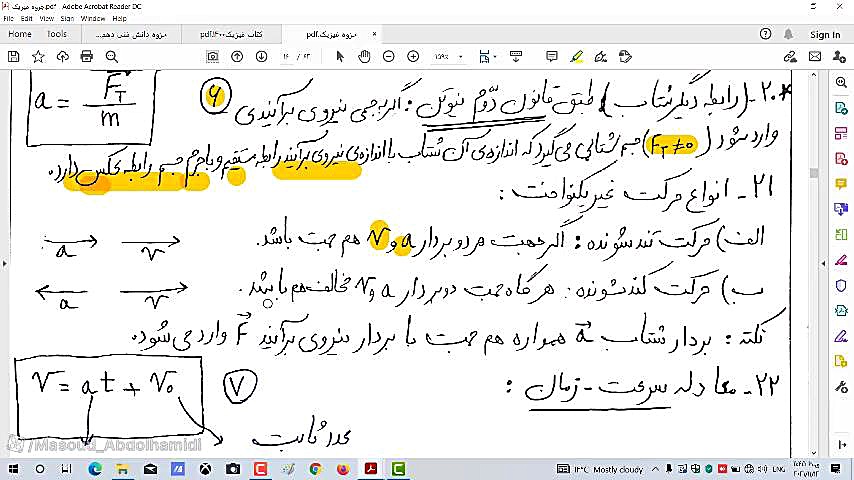 جزوه فیزیک.pdf - Adobe Acrobat Reader DC
File Edit View Sign Window Help
Home Tools
جزوه دانش فنی دهم...
کتاب فیزیک۴۰۰.pdf
جزوه فیزیک.pdf
Sign In
۱۵۹%
*۲۰- (رابطه دیگر شتاب) طبق قانون دوّم نیوتن : اگر به جسمی نیروی برآیندی ۶
a = F_T / m
وارد شود (F_T≠0) جسم شتابی می گیرد که اندازه ی آن شتاب با اندازه ی نیروی برآیند رابطه مستقیم و با جرم جسم رابطه عکس دارد.
۲۱- انواع حرکت غیر یکنواخت :
الف) حرکت تندشونده : اگر جهت هر دو بردار a و V هم جهت باشد.
a v
ب) حرکت کندشونده : هر گاه جهت دو بردار a و V مخالف هم باشد.
a v
نکته : بردار شتاب a همواره هم جهت با بردار نیروی برآیند F وارد می شود.
۲۲- معادله سرعت - زمان :
V = at + V₀ ۷
عدد ثابت
/Masoud_Abdolhamidi
11°C Mostly cloudy
ENG